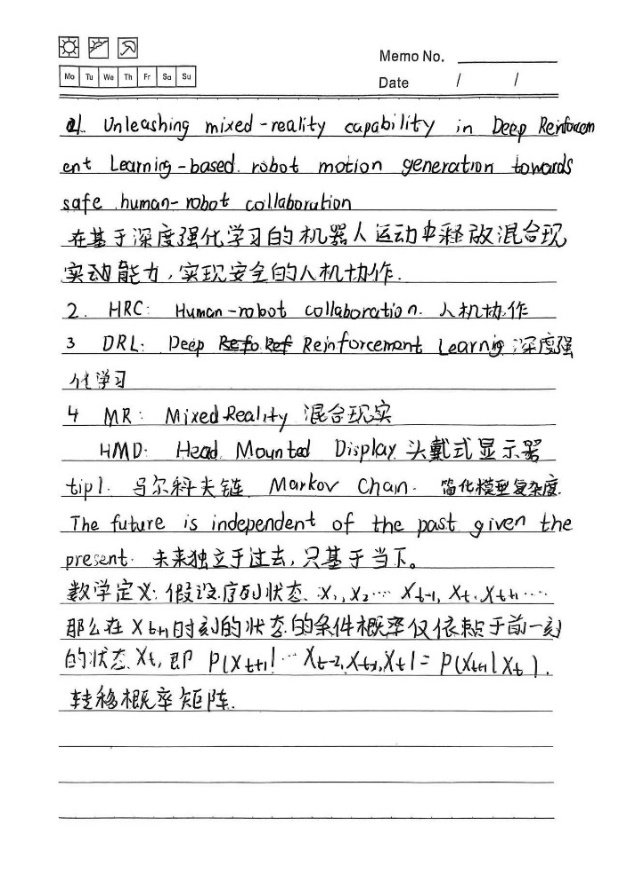 Memo No.
Mo Tu We Th Fr Sa Su
Date / /
1. Unleashing mixed-reality capability in Deep Reinforcem
ent Learning-based robot motion generation towards
safe human-robot collaboration
在基于深度强化学习的机器人运动中释放混合现
实动能力，实现安全的人机协作.
2. HRC: Human-robot collaboration. 人机协作
3 DRL: Deep Reinforcement Learning 深度强
化学习
4 MR: Mixed Reality 混合现实
HMD: Head Mounted Display 头戴式显示器
tip1. 马尔科夫链 Markov Chain. 简化模型复杂度.
The future is independent of the past given the
present. 未来独立于过去,只基于当下。
数学定义: 假设序列状态 X₁, X₂... Xt-1, Xt, Xt+1 ...
那么在Xt+1时刻的状态的条件概率仅依赖于前一刻
的状态Xt, 即 P(Xt+1|...Xt-2,Xt-1,Xt)= P(Xt+1|Xt).
转移概率矩阵.